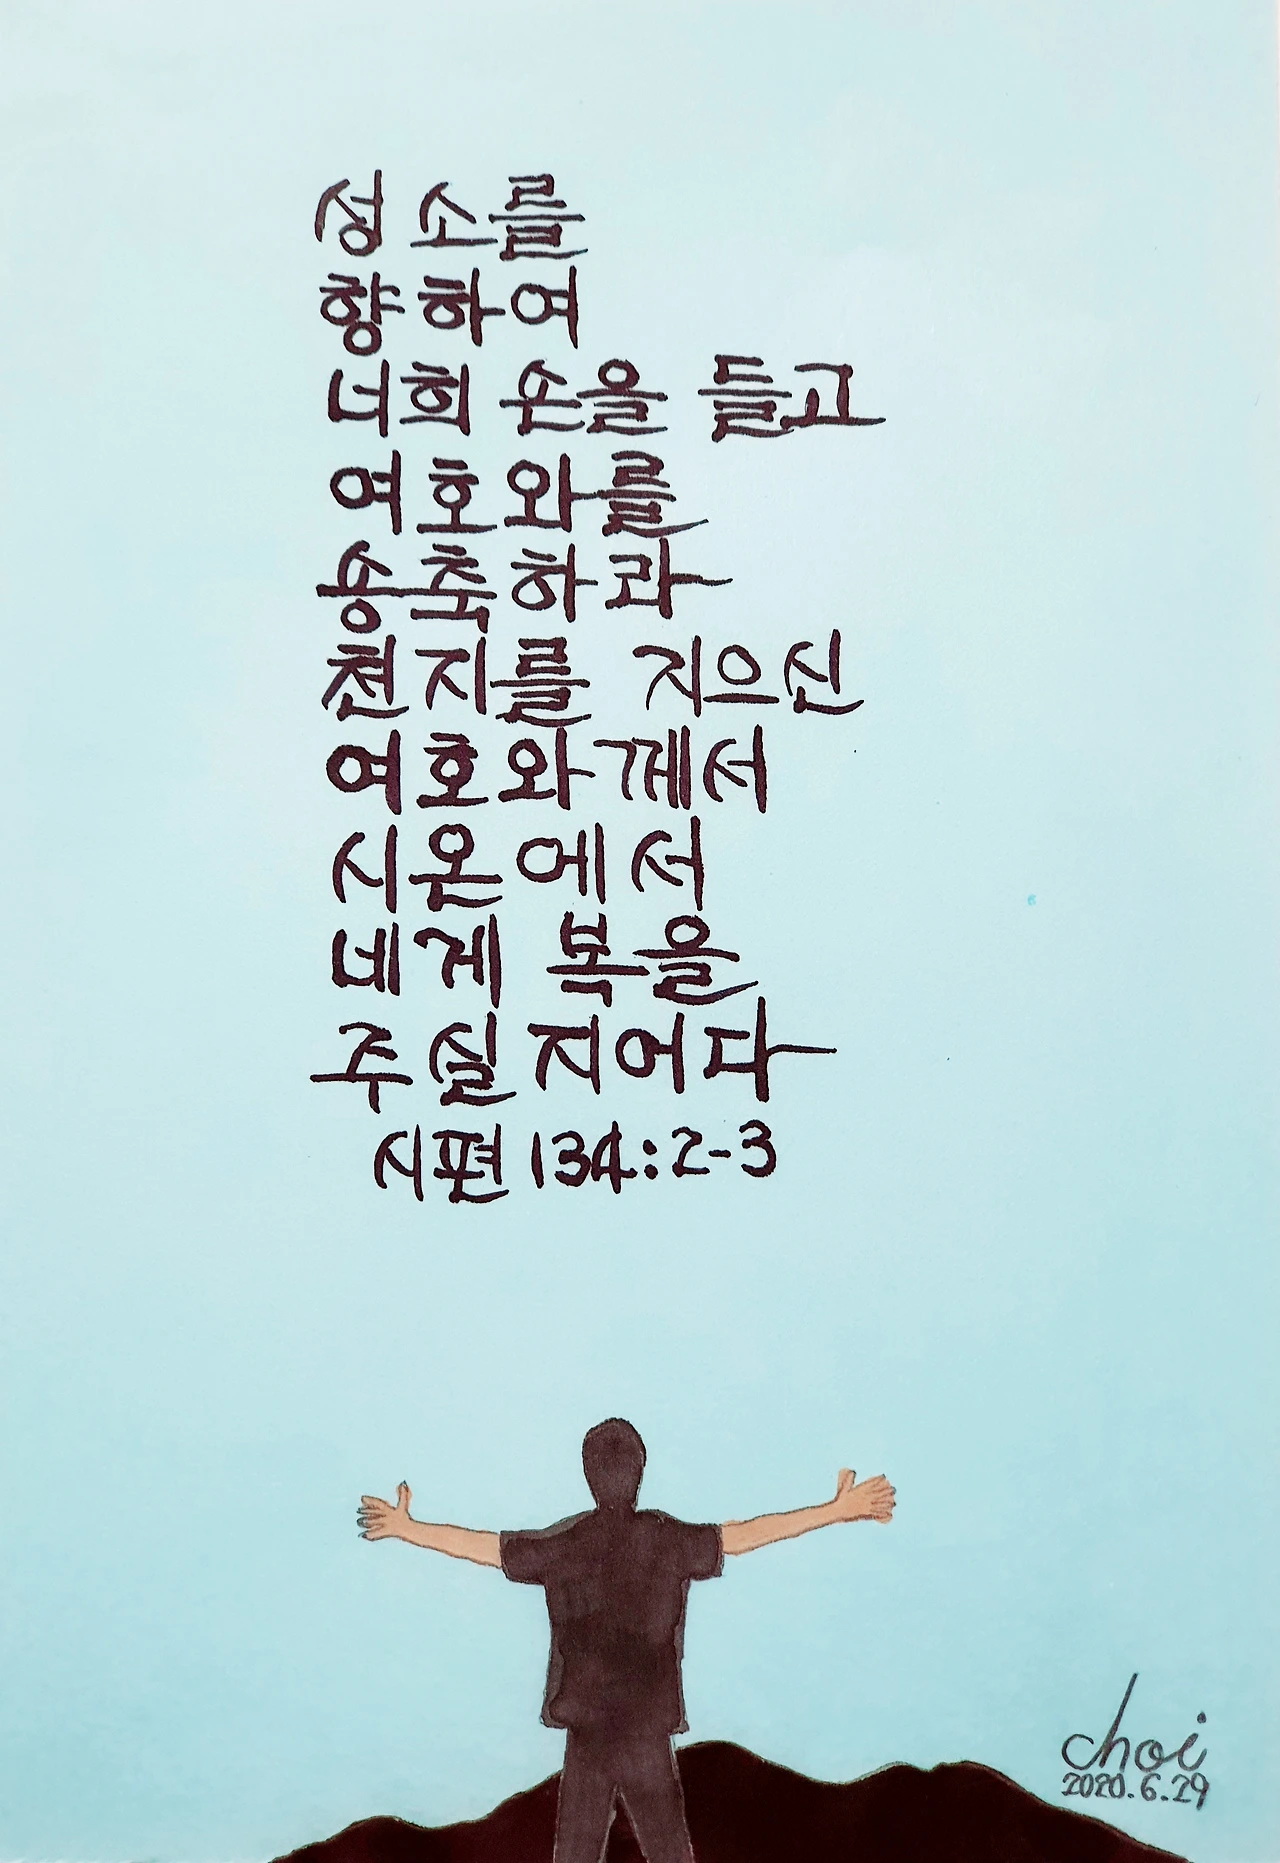 성소를
향하여
너희 손을 들고
여호와를
송축하라
천지를 지으신
여호와께서
시온에서
네게 복을
주실지어다
시편 134:2-3
choi
2020.6.29